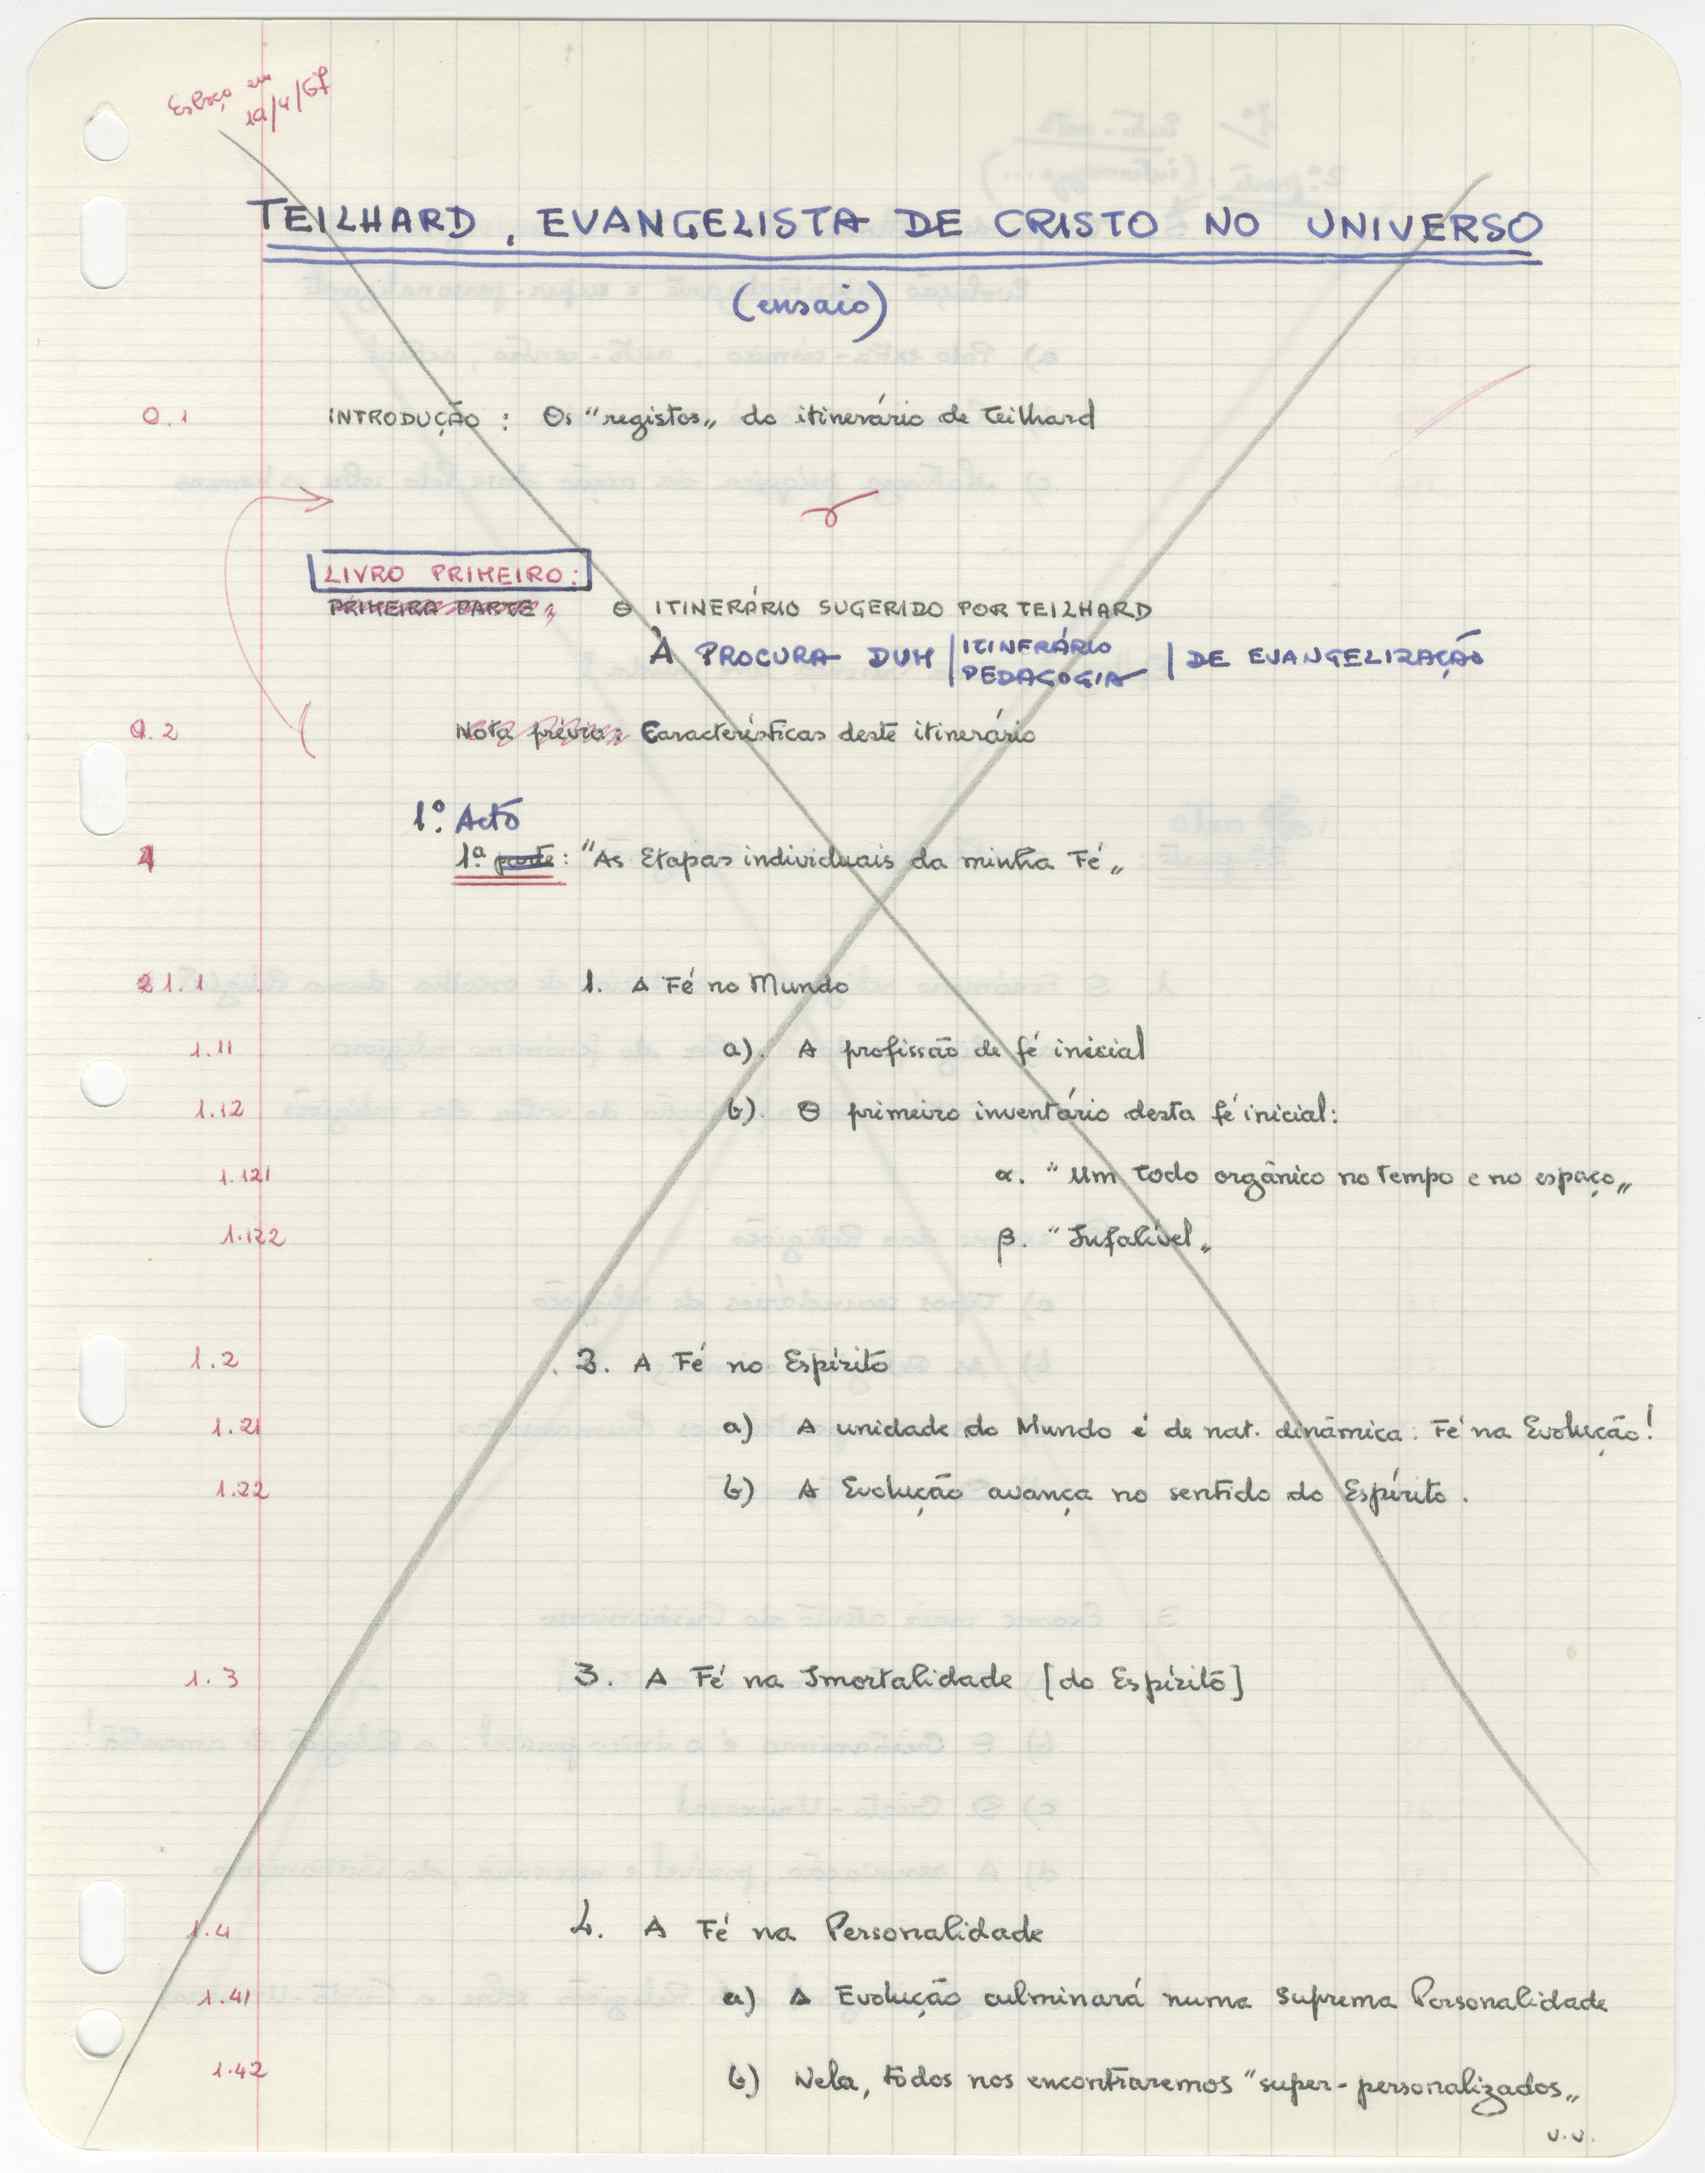 Esboço em
19/4/67
TEILHARD, EVANGELISTA DE CRISTO NO UNIVERSO
(ensaio)
0.1 INTRODUÇÃO : Os "registos„ do itinerário de Teilhard
LIVRO PRIMEIRO:
PRIMEIRA PARTE: O ITINERÁRIO SUGERIDO POR TEILHARD
À PROCURA DUM | ITINERÁRIO PEDAGOGIA | DE EVANGELIZAÇÃO
0.2 Nota prévia: Características deste itinerário
1º. Acto
1 1ª parte: "As Etapas individuais da minha Fé„
1.1 1. A Fé no Mundo
1.11 a). A profissão de fé inicial
1.12 b). O primeiro inventário desta fé inicial:
1.121 α. "Um todo orgânico no tempo e no espaço„
1.122 β. "Infalível„
1.2 2. A Fé no Espírito
1.21 a) A unidade do Mundo é de nat. dinâmica: Fé na Evolução!
1.22 b) A Evolução avança no sentido do Espírito.
1.3 3. A Fé na Imortalidade [do Espírito]
1.4 4. A Fé na Personalidade
1.41 a) A Evolução culminará numa Suprema Personalidade
1.42 b) Nela, todos nos encontraremos "super-personalizados„
v.v.